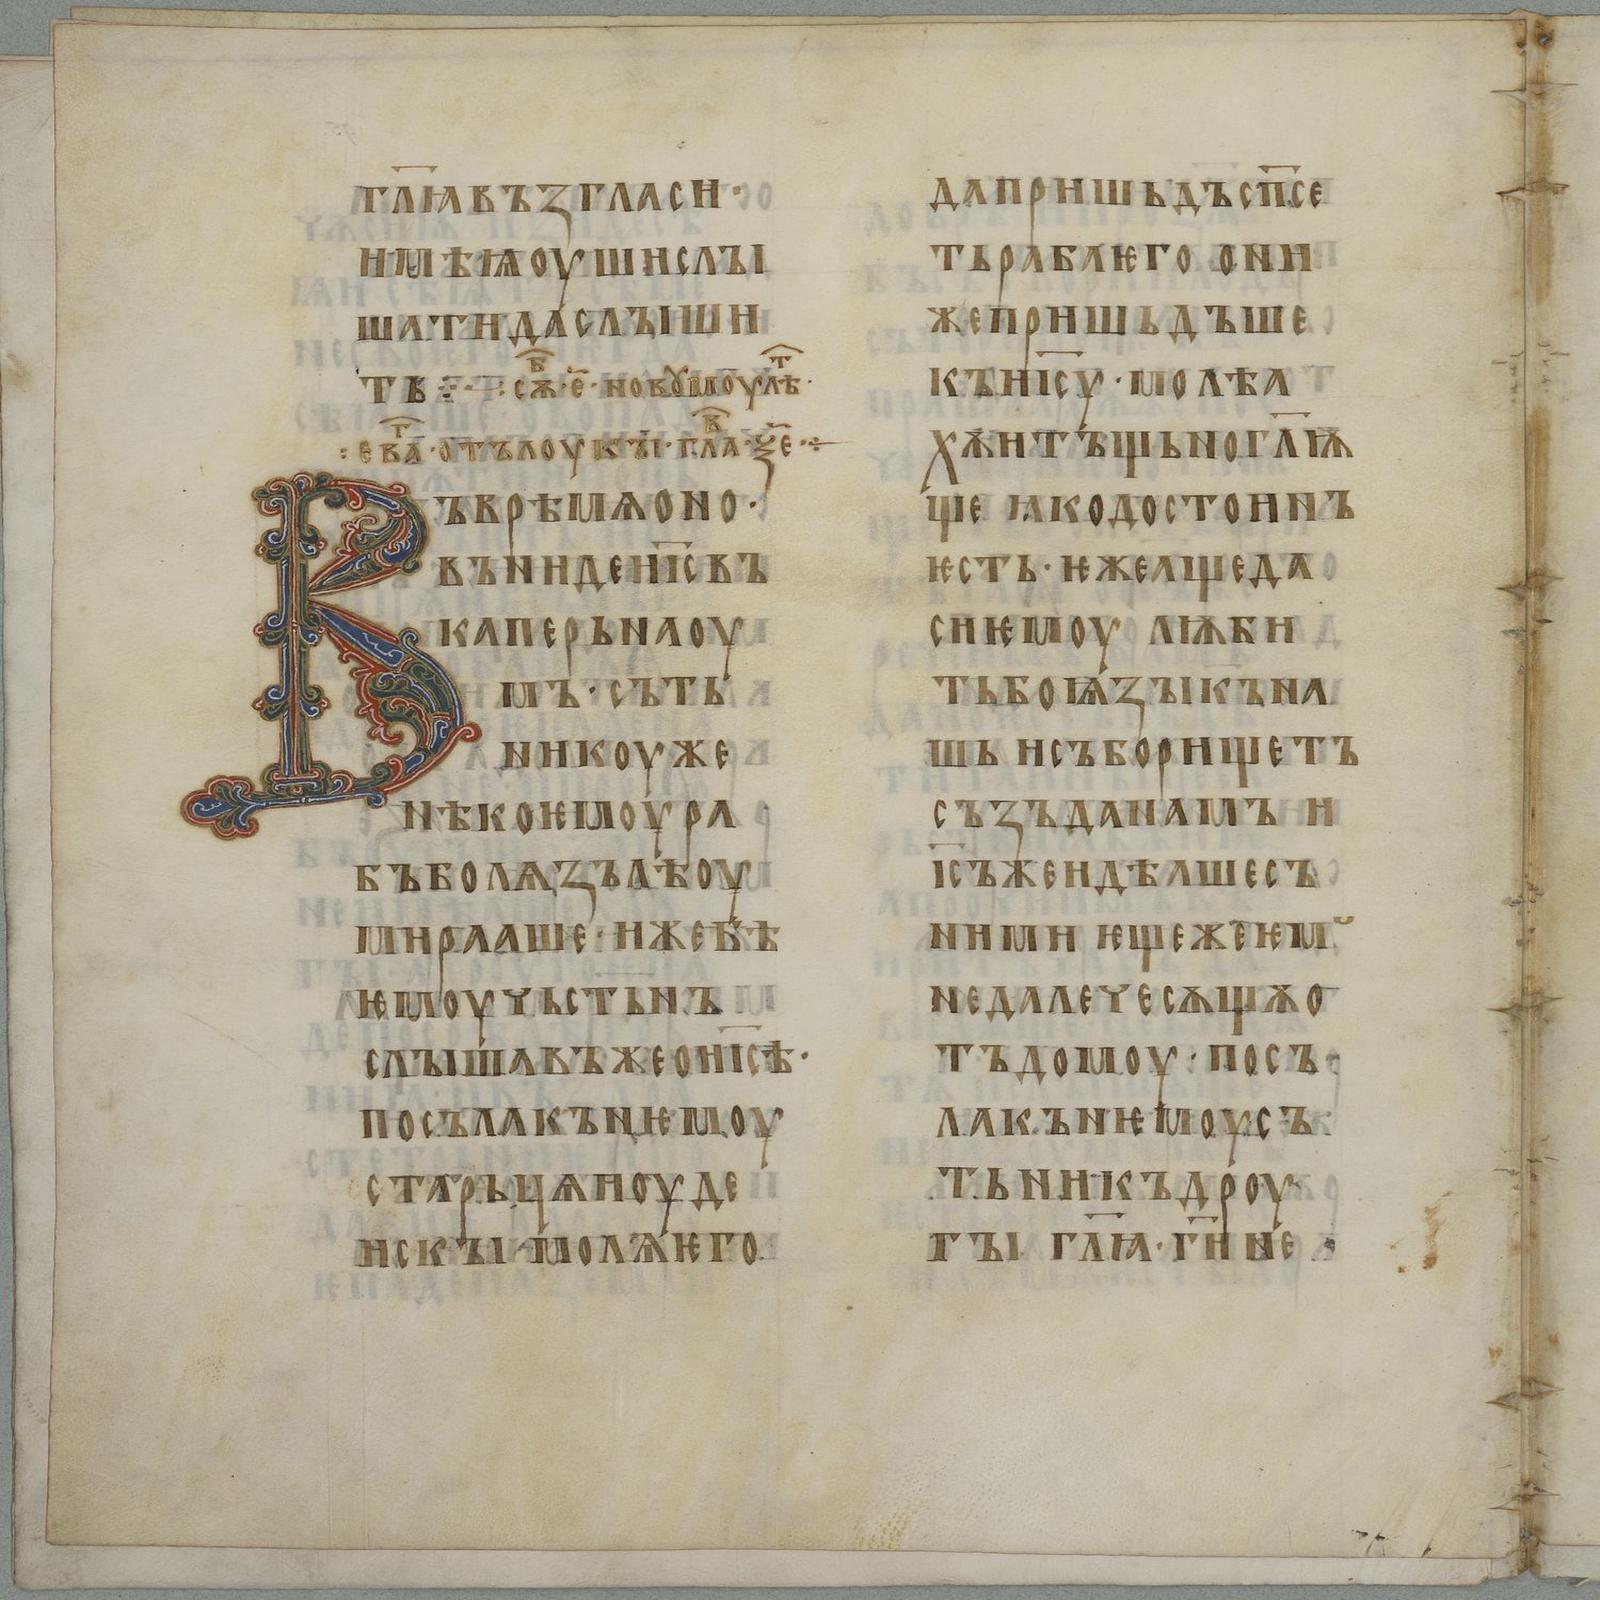 гл҃ꙗвъзгласи·
имѣꙗоушислы
шатидаслꙑши
тъ сѫв҃·е҃·новоумоулѣт҃·
:ева҃г·отълоукꙑ·гла҃в·ѯ҃е·
Въврѣмѧоно·
вънидеиі҃свъ
каперънаоу
мъ·сътъ
никоуже
нѣкоѥмоура
бъболѧзълѣоу
мирааше·ижебѣ
ѥмоучьстьнъ
слꙑшавъжеоиі҃сѣ·
посълакънѥмоу
старьцѧиоуде
искꙑ·молѧѥго
дапришьдъсп҃се
тьрабаѥго они
жепришьдъше
къиі҃су·молѣа
хѫитъщьногл҃ѭ
ще ꙗкодостоинъ
ѥсть·ѥжеащеда
сиѥмоу люби
тьбоѩзꙑкъна
шь исъборищетъ
съзъданамъ и
і҃съжеидѣашесъ
ними ѥщежеѥм
недалечесѫщѫо
тъдомоу·посъ
лакънѥмоусъ
тьникъдроу
гꙑ гл҃ѧ·ги҃ не